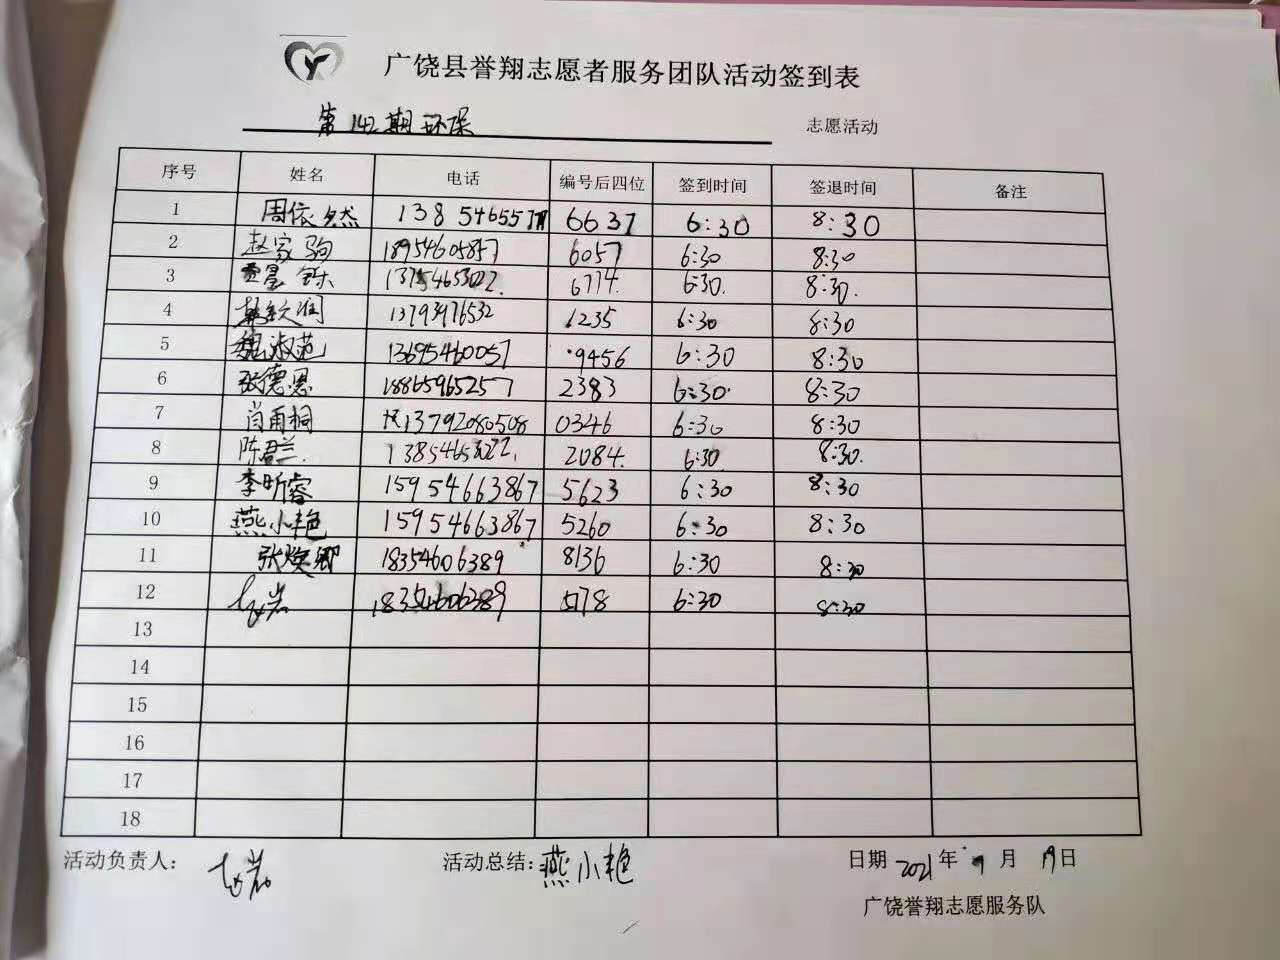 广饶县誉翔志愿者服务团队活动签到表
第142期环保 志愿活动
序号 姓名 电话 编号后四位 签到时间 签退时间 备注
1 周依然 138546557 6637 6:30 8:30
2 赵家驹 18954605857 6057 6:30 8:30
3 6774. 6:30. 8:30.
4 13793976532 6235 6:30 8:30
5 魏淑范 13695460057 9456 6:30 8:30
6 张德恩 18865965257 2383 6:30 8:30
7 肖雨桐 13792080508 0346 6:30 8:30
8 陈君兰 2084. 6:30. 8:30.
9 李昕睿 15954663867 5623 6:30 8:30
10 燕小艳 15954663867 5260 6:30 8:30
11 张焕卿 18354606389 8136 6:30 8:30
12 18354606389 5178 6:30 8:30
13
14
15
16
17
18
活动负责人: 活动总结:燕小艳 日期 2021年 月 19日
广饶誉翔志愿服务队